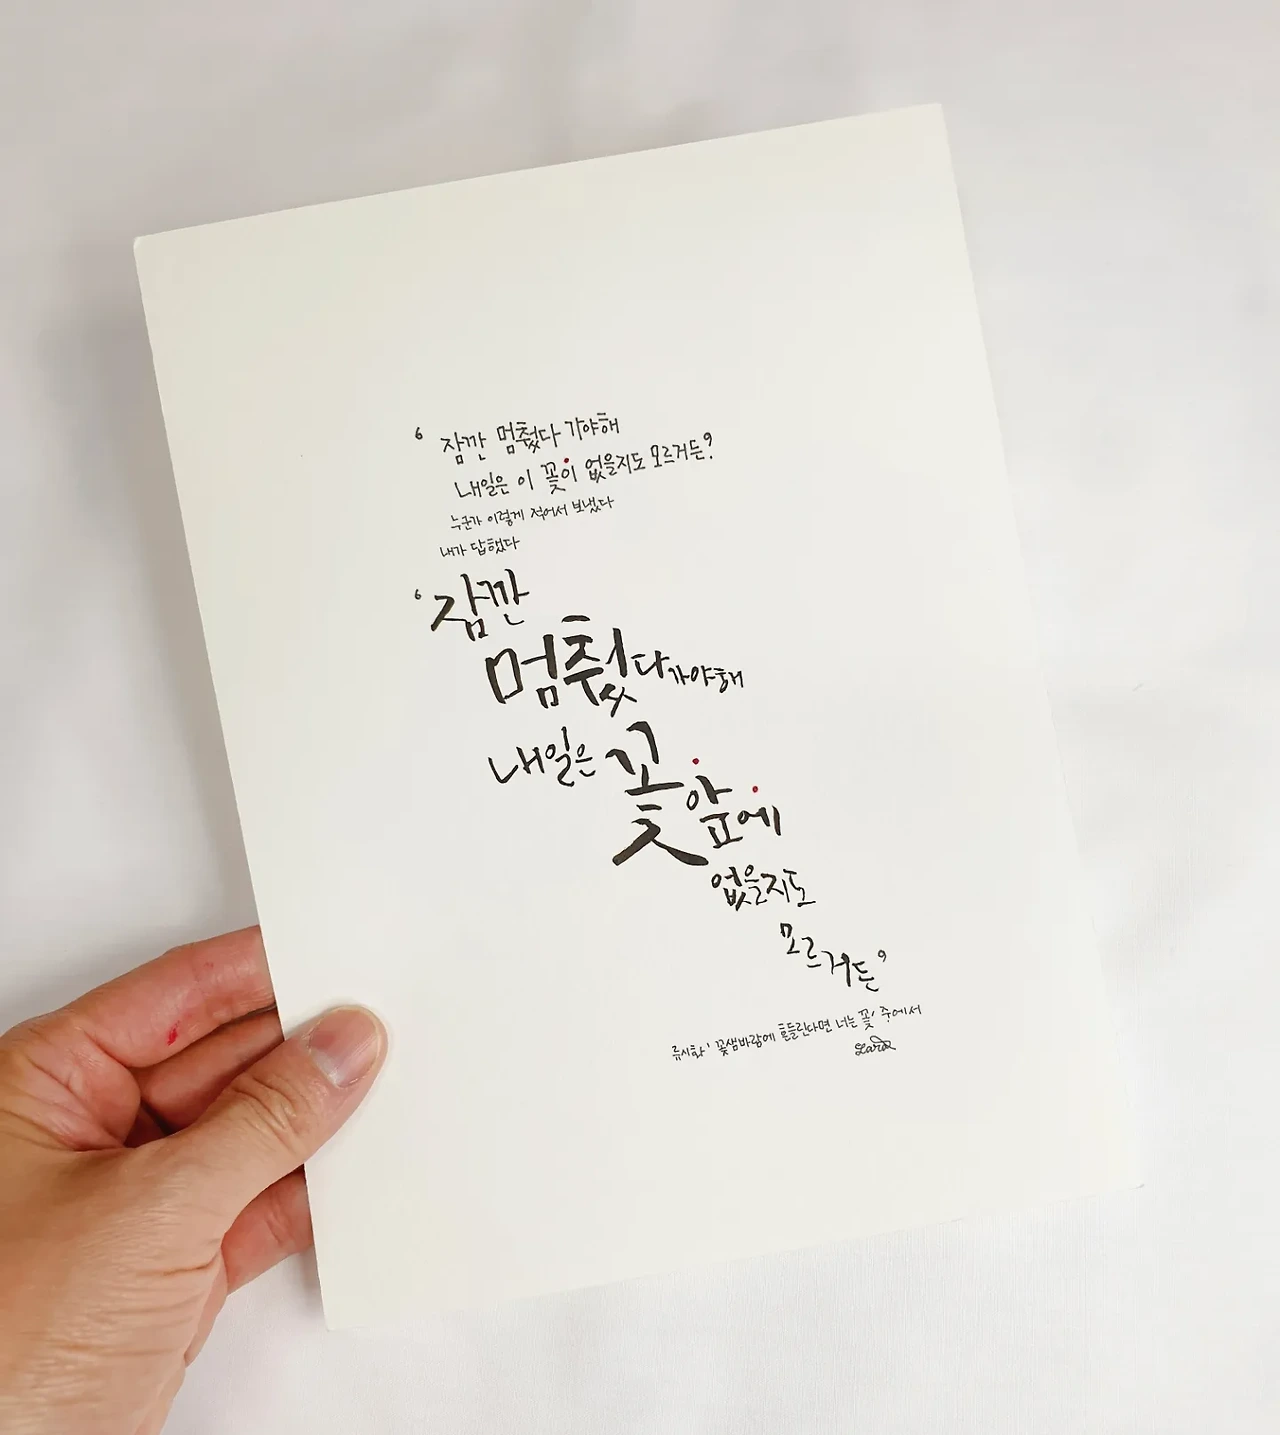 ‘잠깐 멈췄다 가야해
내일은 이 꽃이 없을지도 모르거든’
누군가 이렇게 적어서 보냈다
내가 답했다
‘잠깐
멈췄다 가야해
내일은 꽃 앞에
없을지도
모르거든’
류시화 ' 꽃샘바람에 흔들린다면 너는 꽃' 중에서
Lara